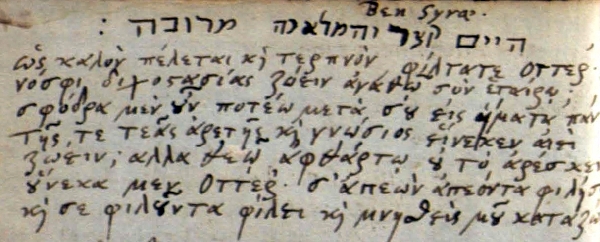 Ben Syræ.
היים קצר והמלאכה מרובה :
ὡς καλὸν πέλεται κὴ τερπνὸν φίλτατε Οττερ·
νόσφι διχοσασίας ζώειν ἀγαθῷ σὺν ἑταίρῳ·
σφόδρα μὲν οὖν ποτέω μετὰ σοῦ εἰς ἤματα πάν
τῆς τε τεᾶς ἀρετῆς κὴ γνώσιος εἵνεκεν αἰεὶ
ζώειν; ἀλλὰ θεῷ ἀφθάρτῳ οὐ τὸ ἀρέσκει
οὕνεκα μευ Οττερ· σ' ἀπεὼν ἀπεόντα φιλησ
κὴ σε φιλοῦντα φίλει κὴ μνηθεὶς μοῦ καταζώ